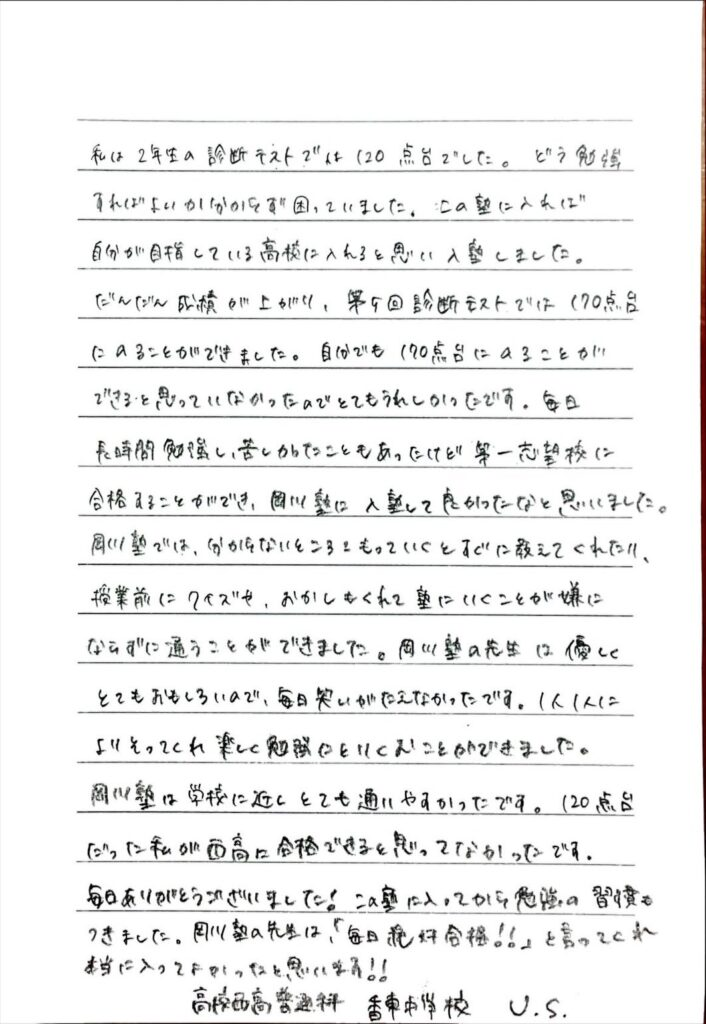 私は2年生の診断テストでは120点台でした。どう勉強
すればよいか分からず困っていました。この塾に入れば
自分が目指している高校に入れると思い入塾しました。
だんだん成績が上がり、第5回診断テストでは170点台
にのることができました。自分でも170点台にのることが
できると思っていなかったのでとてもうれしかったです。毎日
長時間勉強し、苦しかったこともあったけど第一志望校に
合格することができ、岡川塾に入塾して良かったなと思いました。
岡川塾では、分からないところをもっていくとすぐに教えてくれたり、
授業前にクイズや、おかしもくれて塾にいくことが嫌に
ならずに通うことができました。岡川塾の先生は優しく
とてもおもしろいので、毎日笑いがたえなかったです。1人1人に
よりそってくれ楽しく勉強にとりくむことができました。
岡川塾は学校に近しとても通いやすかったです。120点台
だった私が西高に合格できると思ってなかったです。
毎日ありがとうございました!この塾に入ってから勉強の習慣も
つきました。岡川塾の先生は、「毎日絶対合格!!」と言ってくれ
本当に入ってよかったなと思います!!
高松西高普通科 香東中学校 U.S.